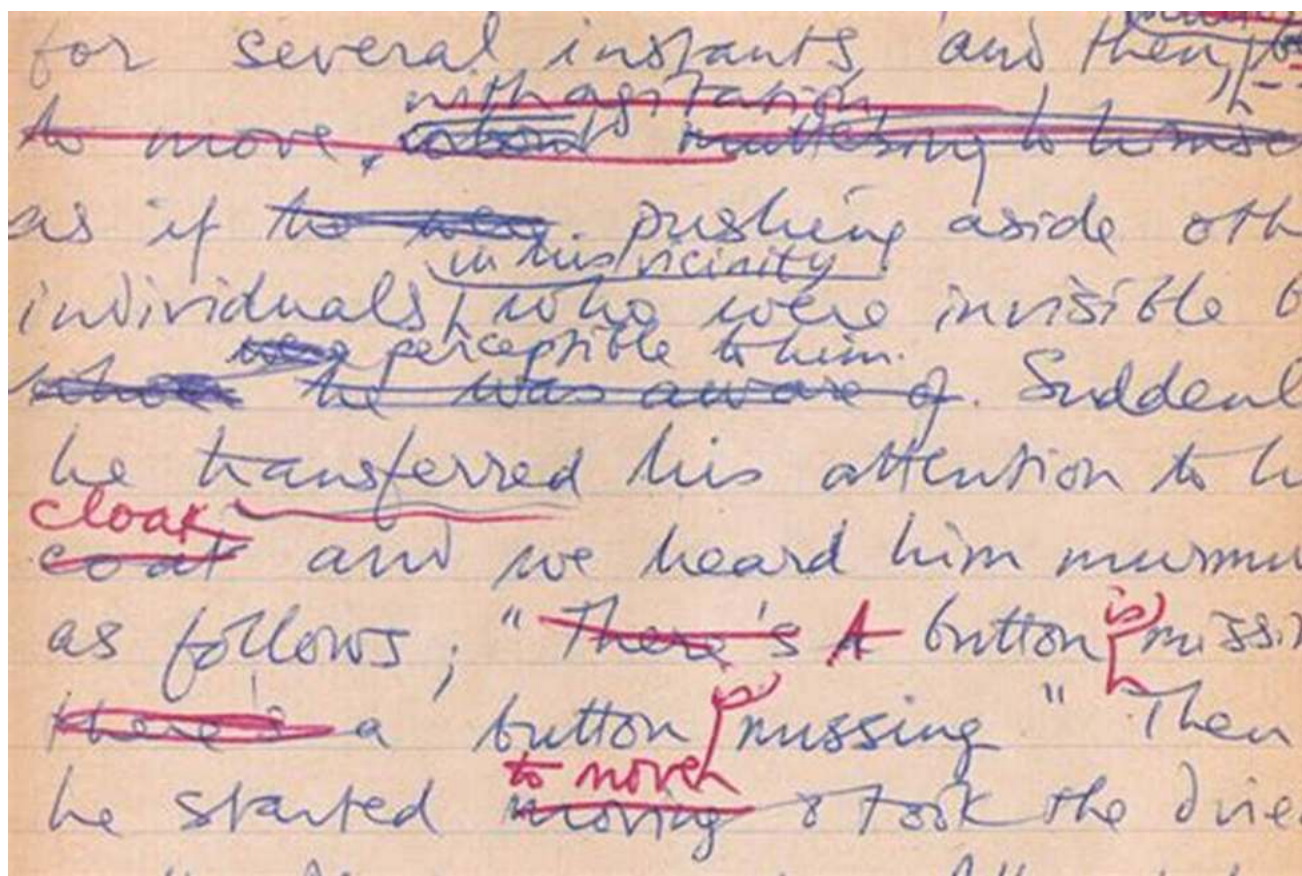 for several instants and then,
with agitation
to move, muttering to himse
as if he were pushing aside oth
in his vicinity
individuals, who were invisible b
were perceptible to him.
he was aware of. Suddenl
he transferred his attention to h
cloak
coat and we heard him murmu
as follows; "There's A button is missi
there's a button is missing" Then
to move
he started moving & took the dire